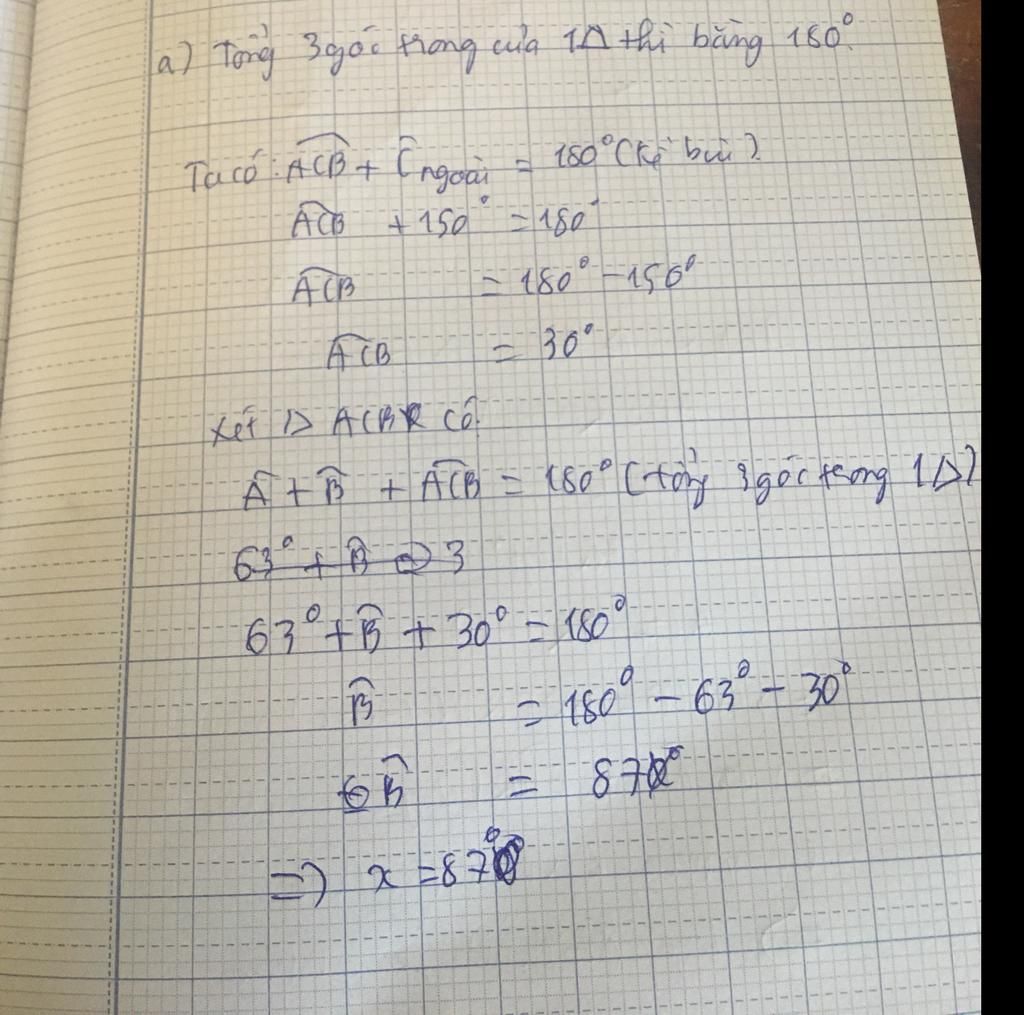 a) Tổng 3 góc trong của 1Δ thì bằng 180°.
Ta có: ACB + C ngoài = 180° (kề bù)
ACB + 150° = 180°
ACB = 180° - 150°
ACB = 30°
Xét Δ ACB có
A + B + ACB = 180° (tổng 3 góc trong 1Δ)
63° + B = 3
63° + B + 30° = 180°
B = 180° - 63° - 30°
B = 87°
=> x = 87°